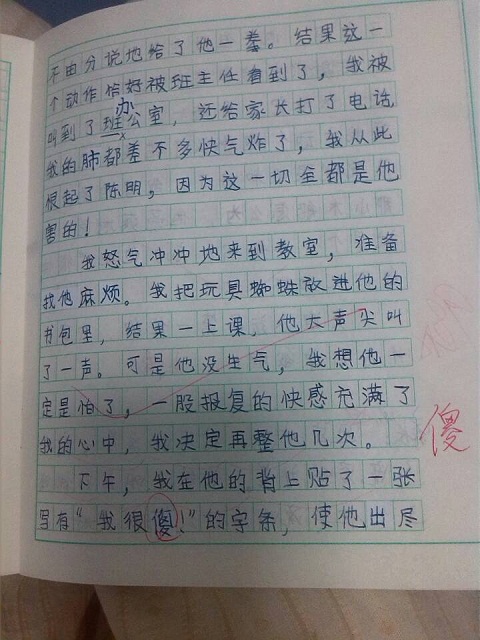 不由分说地给了他一拳。结果这一
个动作恰好被班主任看到了，我被
办
叫到了班公室，还给家长打了电话
我的肺都差不多快气炸了，我从此
恨起了陈明，因为这一切全都是他
害的！
我怒气冲冲地来到教室，准备
找他麻烦。我把玩具蜘蛛放进他的
书包里，结果一上课，他大声尖叫
了一声。可是他没生气，我想他一
定是怕了，一股报复的快感充满了
我的心中，我决定再整他几次。
傻
下午，我在他的背上贴了一张
写有“我很傻！”的字条，使他出尽